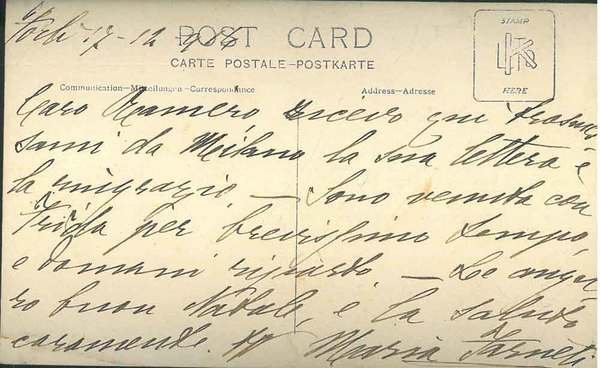 Forlì 17-12 908
POST CARD
CARTE POSTALE-POSTKARTE
STAMP
HERE
Communication-Mitteilungen-Correspondance
Address-Adresse
Caro Romero ricevo qui trasmes
sami da Milano la sua lettera e
la ringrazio — Sono venuta con
per brevissimo tempo,
e domani riparto — Le augu
ro buon Natale, e la saluto
caramente. Maria Farneti